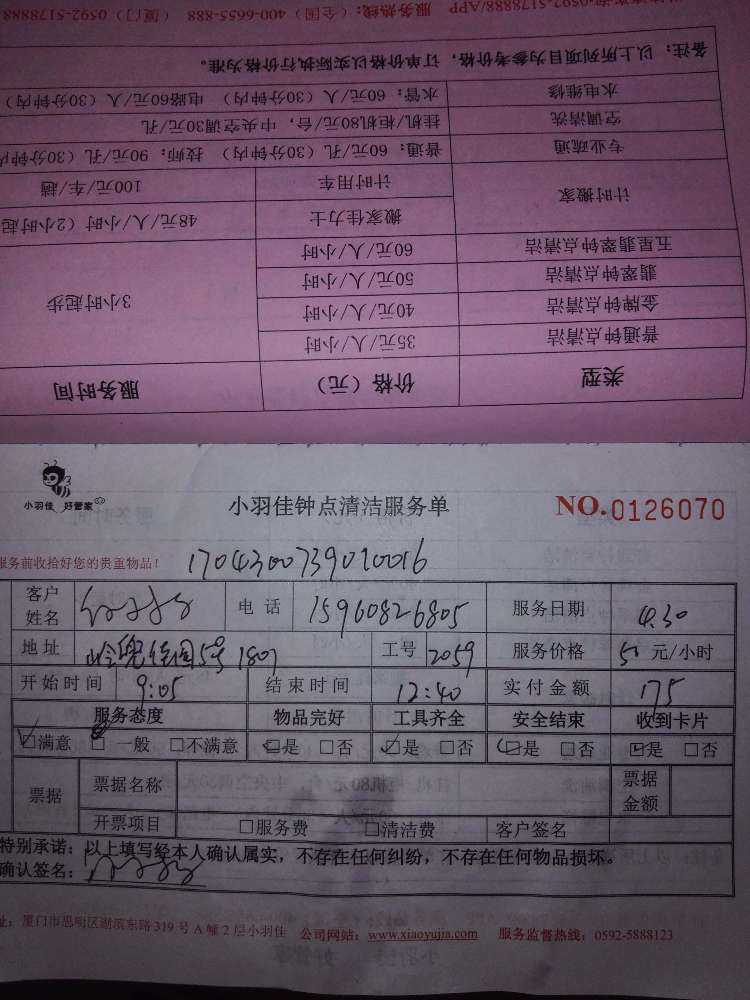 类型 价格（元） 服务时间
普通钟点清洁 35元/人/小时
金牌钟点清洁 40元/人/小时 3小时起步
翡翠钟点清洁 50元/人/小时
五星翡翠钟点清洁 60元/人/小时
计时搬家 搬家佳力士 48元/人/小时（2小时起
计时用车 100元/车/趟
专业疏通 普通：60元/孔（30分钟内） 技师：90元/孔（30分钟内
空调清洗 挂机/柜机80元/台，中央空调30元/孔
水电维修 水管：60元/人（30分钟内） 电路60元/人（30分钟内）
备注：以上所列项目为参考价格，订单价格以实际执行价格为准。
0592-5178888/APP 服务热线：（全国）400-6655-888 （厦门）0592-5178888
小羽佳 好管家
小羽佳钟点清洁服务单 NO.0126070
服务前收拾好您的贵重物品！ 1704300739010016
客户姓名 电话 15960826805 服务日期 4.30
地址 5号1807 工号 2059 服务价格 50 元/小时
开始时间 9:05 结束时间 12:40 实付金额 175
服务态度 物品完好 工具齐全 安全结束 收到卡片
☑满意 □一般 □不满意 ☑是 □否 ☑是 □否 ☑是 □否 ☑是 □否
票据 票据名称 票据金额
开票项目 □服务费 □清洁费 客户签名
特别承诺：以上填写经本人确认属实，不存在任何纠纷，不存在任何物品损坏。
确认签名：
址：厦门市思明区湖滨东路319号A幢2层小羽佳 公司网站：www.xiaoyujia.com 服务监督热线：0592-5888123